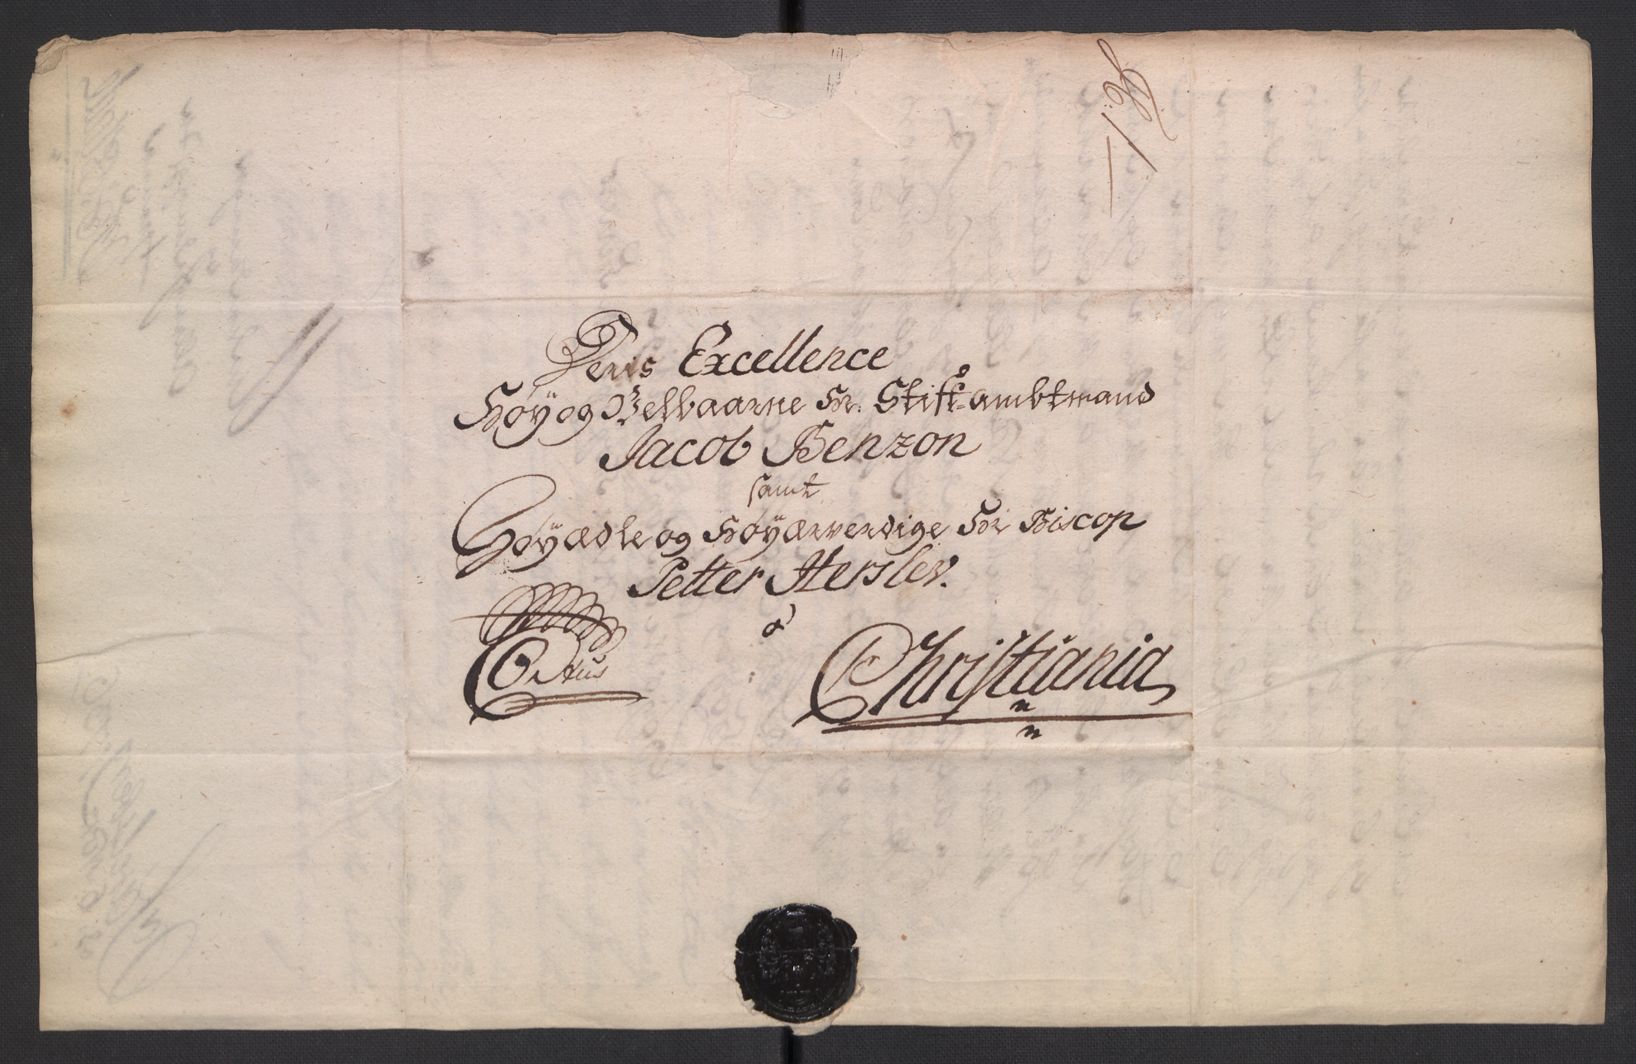 No: 1
Deris Excellence
Høy og Velbaarne Hr. Stift-ambtmand
Jacob Benzon
samt
Høyædle og Høyærverdige Hr Biscop
Petter Herslev.
a'
Christiania